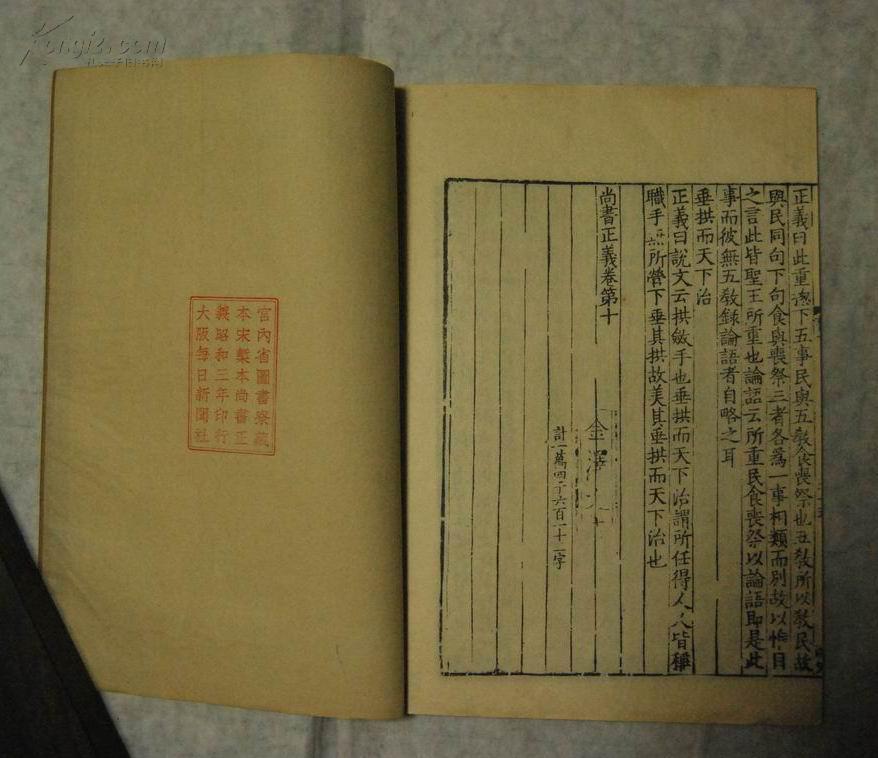 正義曰此重摠下五事民與五教食喪祭也五教所以教民故
與民同句下句食與喪祭三者各爲一事相類而別故以惟目
之言此皆聖王所重也論語云所重民食喪祭以論語即是此
事而彼無五教録論語者自略之耳
垂拱而天下治
正義曰說文云拱斂手也垂拱而天下治謂所任得人人皆稱
職手無所營下垂其拱故美其垂拱而天下治也
尚書正義卷第十
金澤文
計一萬四千六百一十二字
宮內省圖書寮藏
本宋槧本尚書正
義昭和三年印行
大阪每日新聞社
Kongfz.com